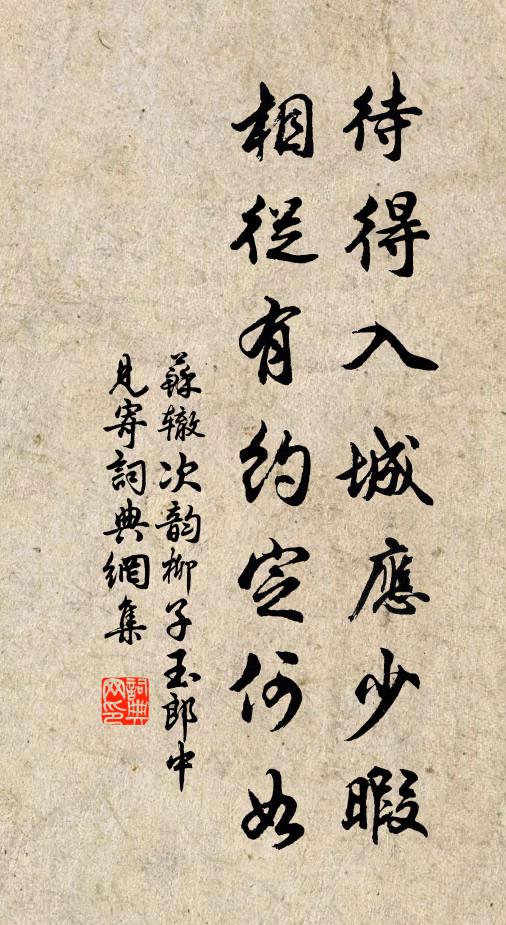 待得入城應少暇
相從有約定何如
蘇轍次韵柳子玉郎中
見寄詞典網集
詞典网印